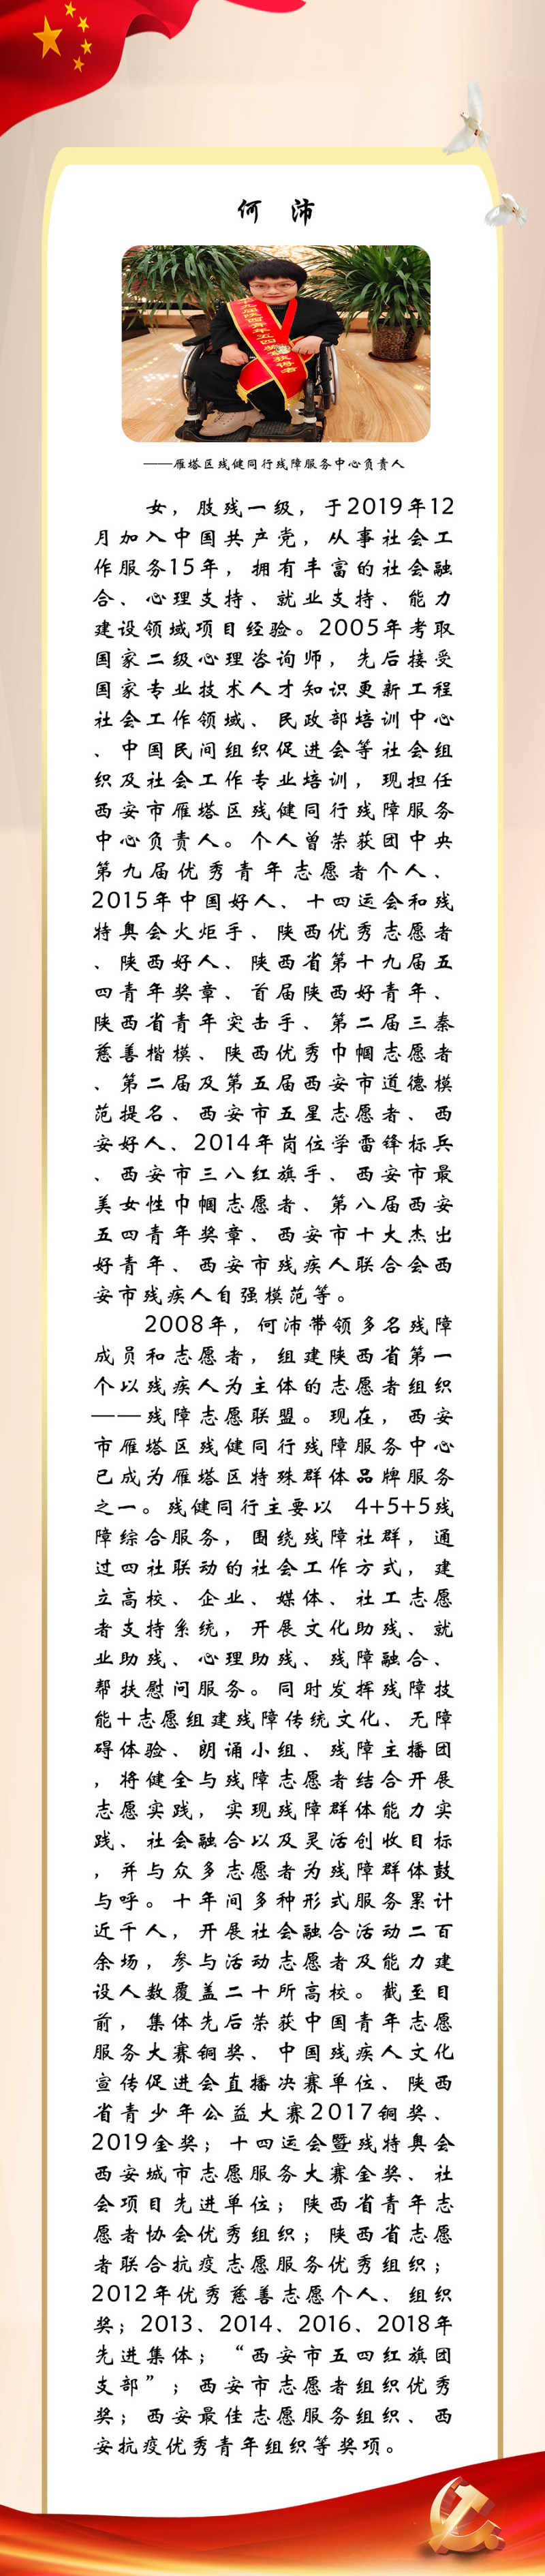 何 沛
十九届陕西青年五四奖章获得者
——雁塔区残健同行残障服务中心负责人
女，肢残一级，于2019年12
月加入中国共产党，从事社会工
作服务15年，拥有丰富的社会融
合、心理支持、就业支持、能力
建设领域项目经验。2005年考取
国家二级心理咨询师，先后接受
国家专业技术人才知识更新工程
社会工作领域、民政部培训中心
、中国民间组织促进会等社会组
织及社会工作专业培训，现担任
西安市雁塔区残健同行残障服务
中心负责人。个人曾荣获团中央
第九届优秀青年志愿者个人、
2015年中国好人、十四运会和残
特奥会火炬手、陕西优秀志愿者
、陕西好人、陕西省第十九届五
四青年奖章、首届陕西好青年、
陕西省青年突击手、第二届三秦
慈善楷模、陕西优秀巾帼志愿者
、第二届及第五届西安市道德模
范提名、西安市五星志愿者、西
安好人、2014年岗位学雷锋标兵
、西安市三八红旗手、西安市最
美女性巾帼志愿者、第八届西安
五四青年奖章、西安市十大杰出
好青年、西安市残疾人联合会西
安市残疾人自强模范等。
2008年，何沛带领多名残障
成员和志愿者，组建陕西省第一
个以残疾人为主体的志愿者组织
——残障志愿联盟。现在，西安
市雁塔区残健同行残障服务中心
已成为雁塔区特殊群体品牌服务
之一。残健同行主要以 4+5+5残
障综合服务，围绕残障社群，通
过四社联动的社会工作方式，建
立高校、企业、媒体、社工志愿
者支持系统，开展文化助残、就
业助残、心理助残、残障融合、
帮扶慰问服务。同时发挥残障技
能+志愿组建残障传统文化、无障
碍体验、朗诵小组、残障主播团
，将健全与残障志愿者结合开展
志愿实践，实现残障群体能力实
践、社会融合以及灵活创收目标
，并与众多志愿者为残障群体鼓
与呼。十年间多种形式服务累计
近千人，开展社会融合活动二百
余场，参与活动志愿者及能力建
设人数覆盖二十所高校。截至目
前，集体先后荣获中国青年志愿
服务大赛铜奖、中国残疾人文化
宣传促进会直播决赛单位、陕西
省青少年公益大赛2017铜奖、
2019金奖；十四运会暨残特奥会
西安城市志愿服务大赛金奖、社
会项目先进单位；陕西省青年志
愿者协会优秀组织；陕西省志愿
者联合抗疫志愿服务优秀组织；
2012年优秀慈善志愿个人、组织
奖；2013、2014、2016、2018年
先进集体；“西安市五四红旗团
支部”；西安市志愿者组织优秀
奖；西安最佳志愿服务组织、西
安抗疫优秀青年组织等奖项。